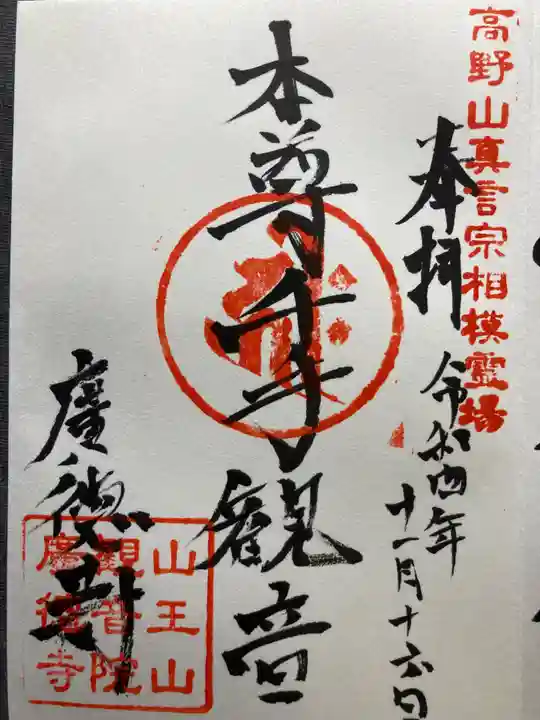 高野山真言宗相模霊場
奉拝
令和四年
十一月十六日
本尊千手観音
廣徳寺
山王山
観音院
廣徳寺